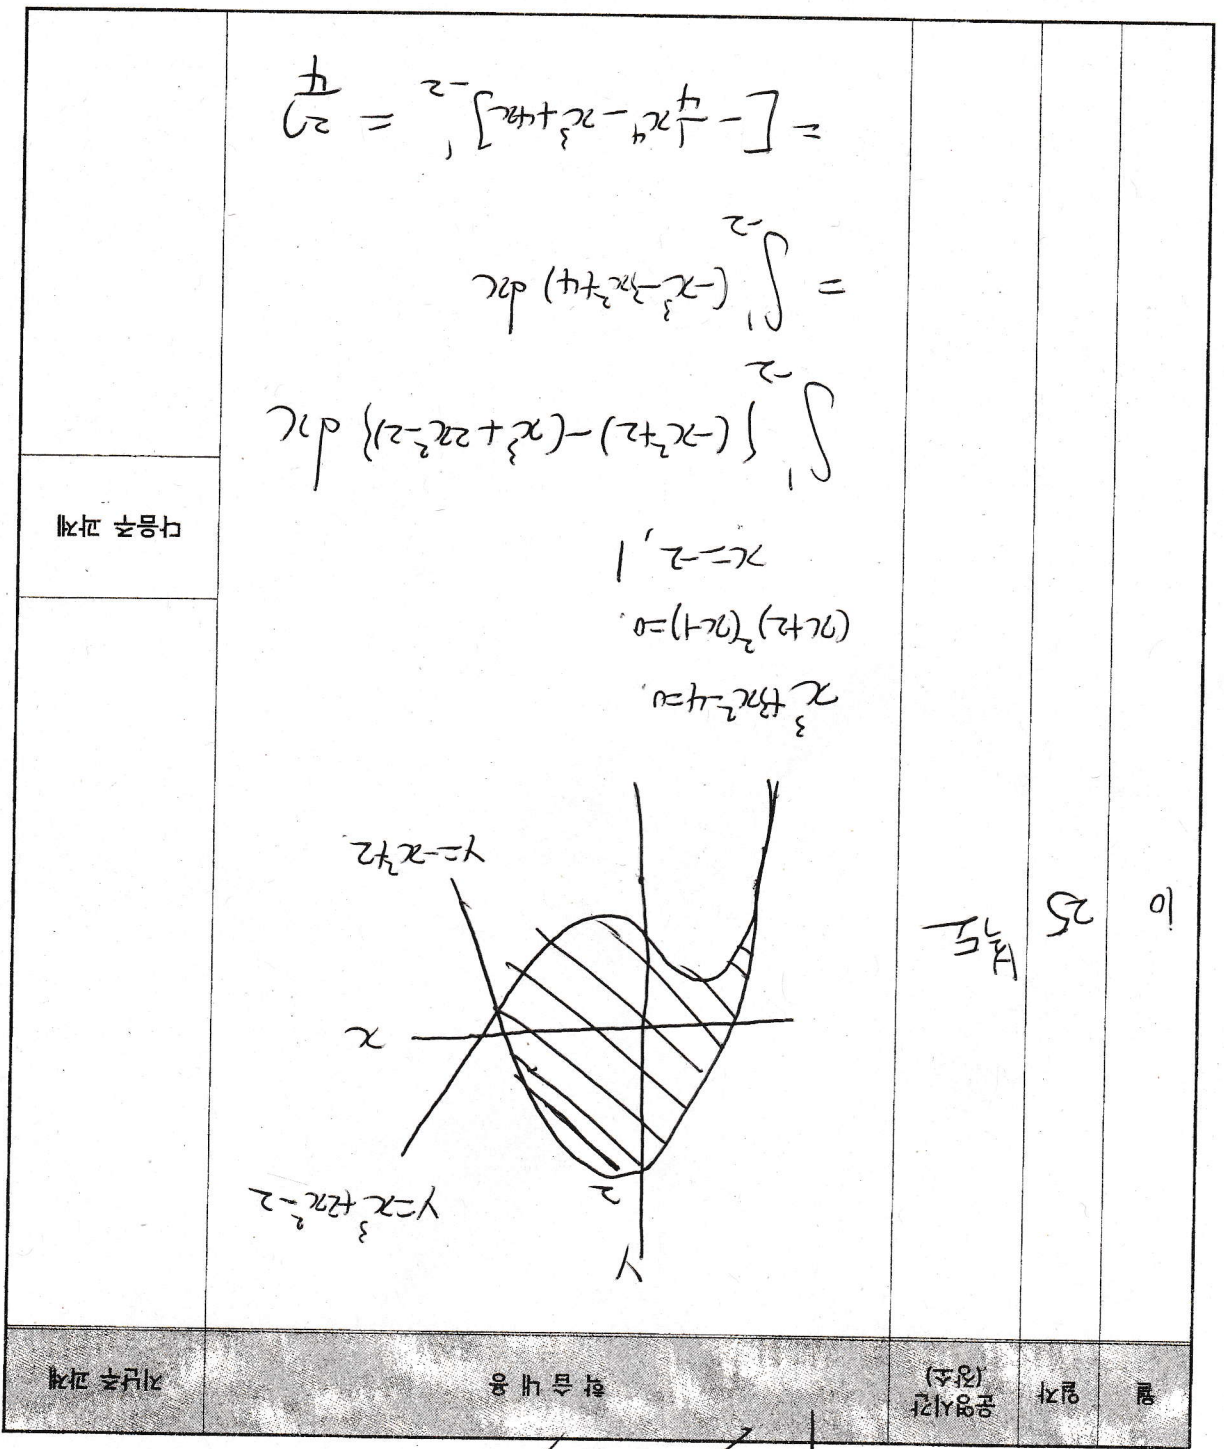 월 일자 운영시간 (장소) 학 습 내 용 지난주 과제
10 25
y
2
y=x³+2x²-2
x
y=-x²+2
x³+3x²-4=0.
(x+2)²(x-1)=0.
x=-2, 1
∫₋₂¹ {(-x²+2)-(x³+2x²-2)} dx
다음주 과제
= ∫₋₂¹ (-x³-3x²+4) dx
= [-1/4x⁴-x³+4x]₋₂¹ = 27/4